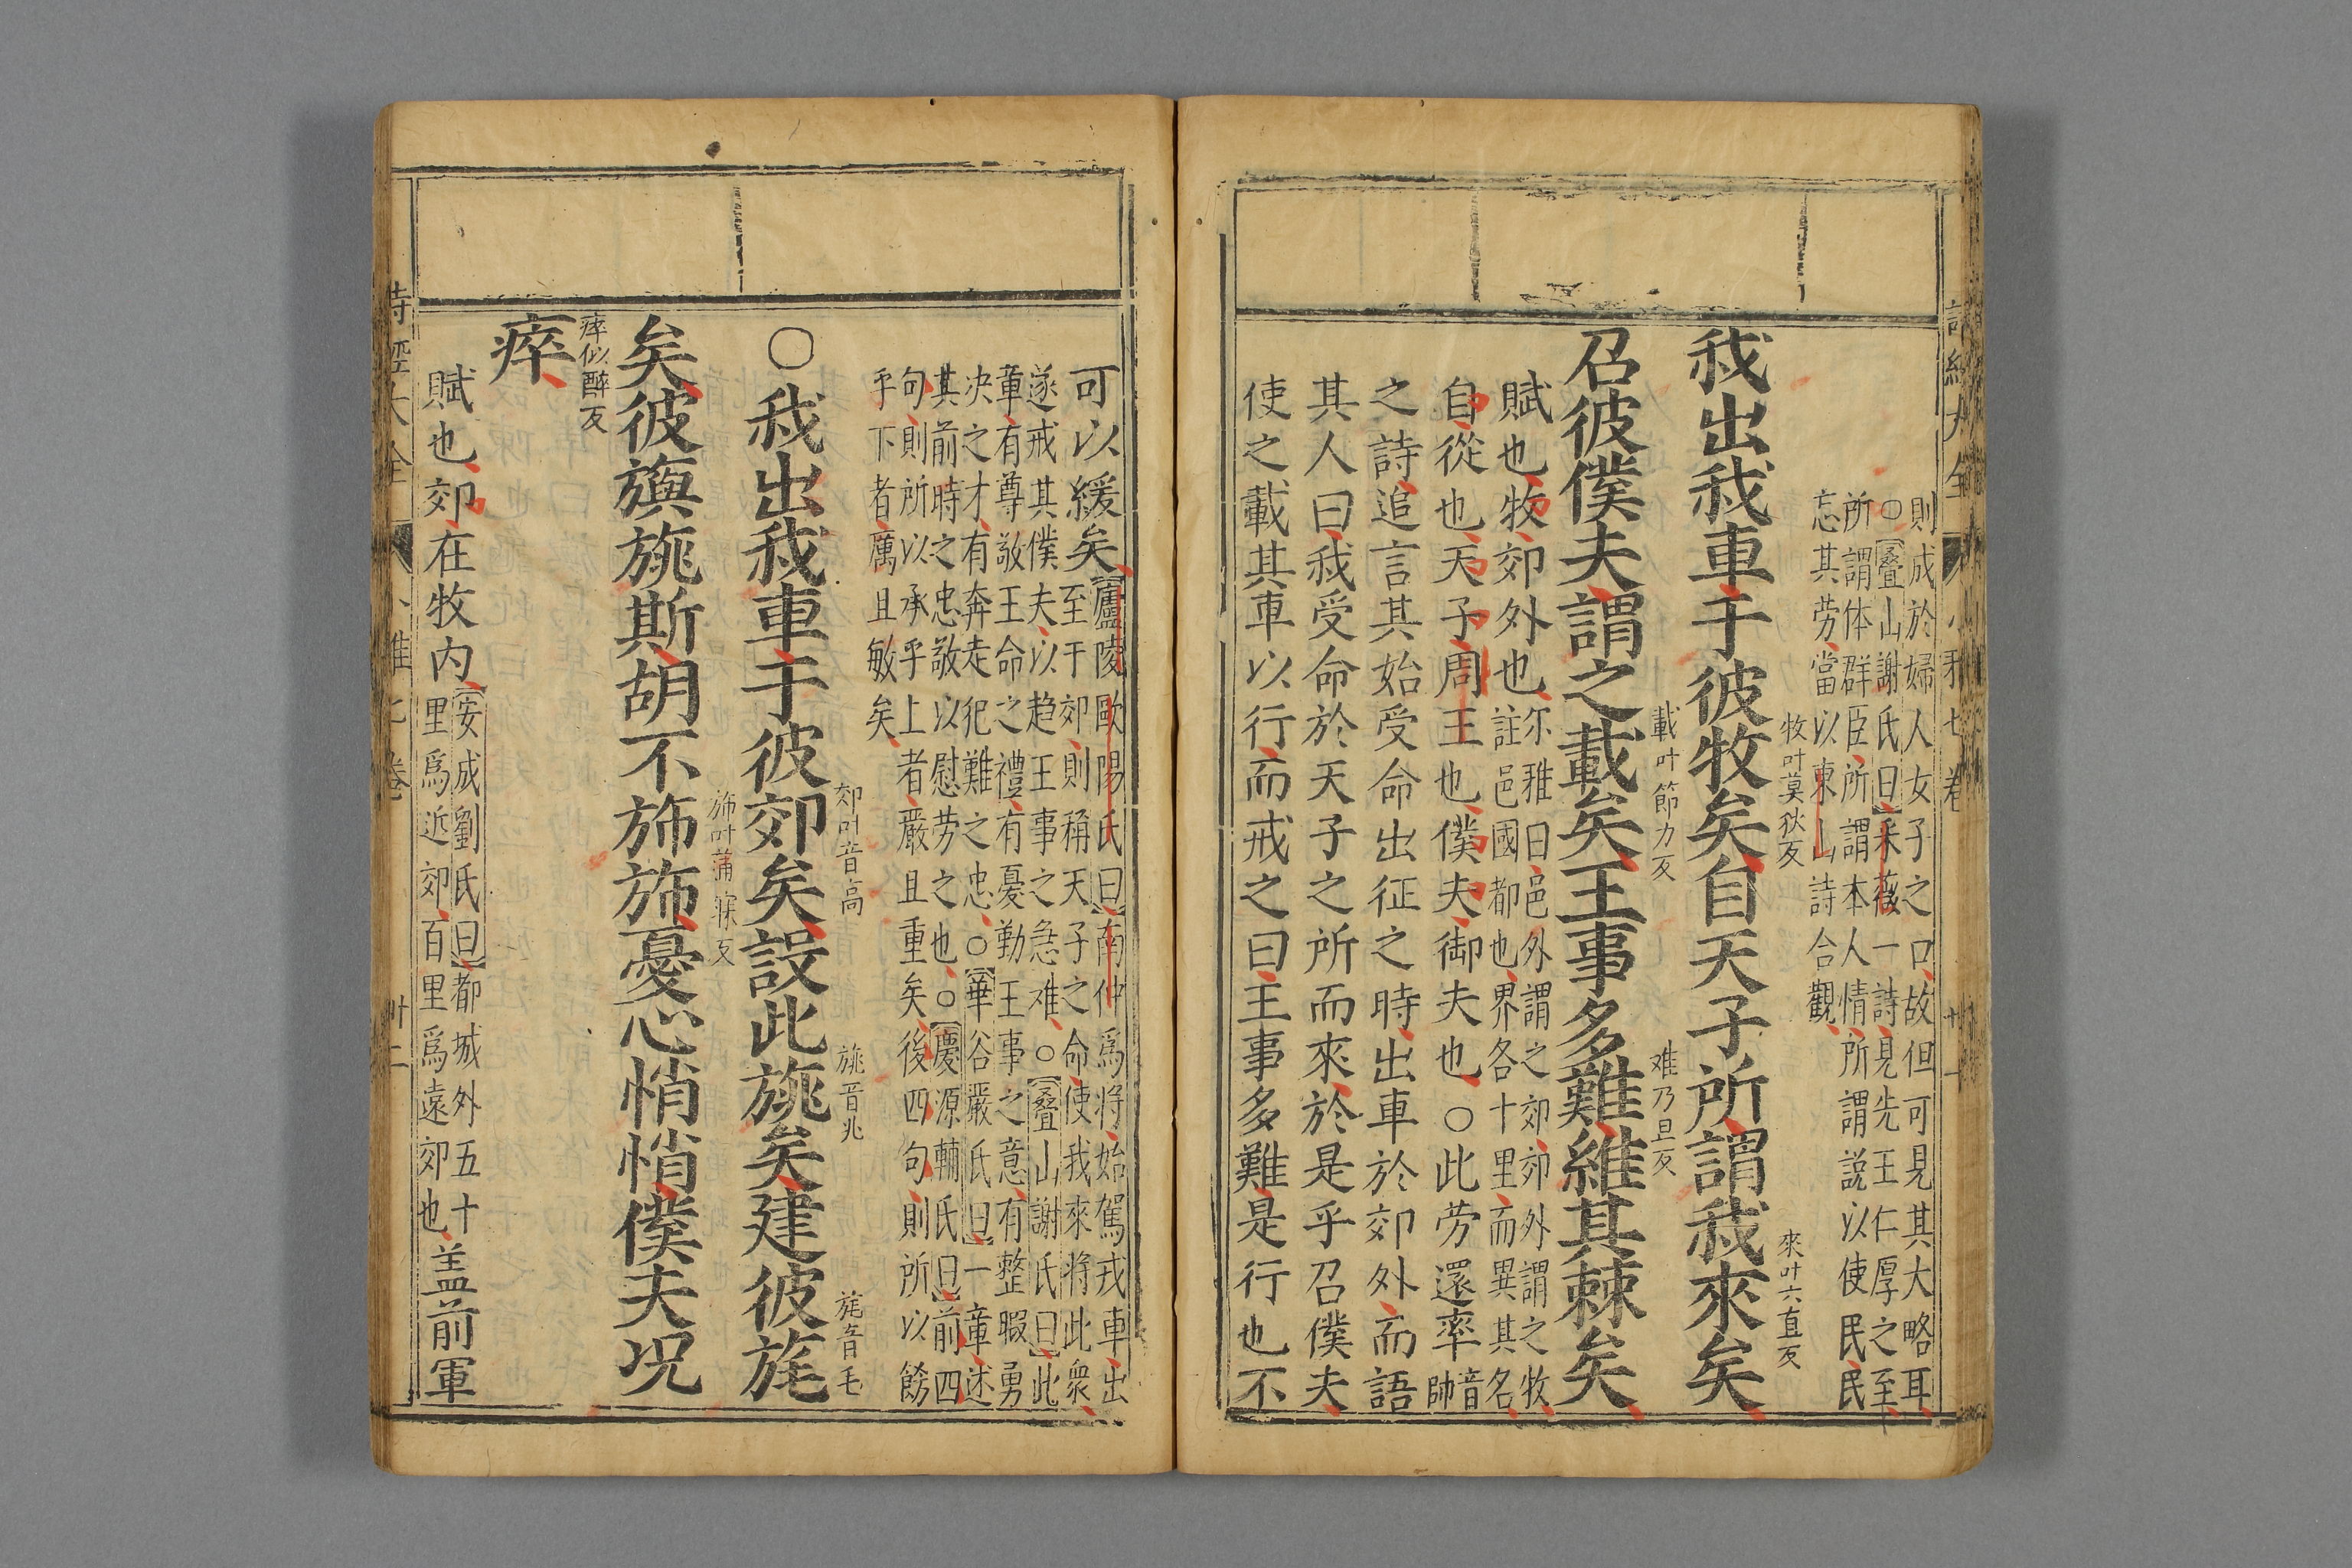 則成於婦人女子之口故但可見其大略耳
○疊山謝氏曰采薇一詩見先王仁厚之至
所謂体群臣所謂本人情所謂說以使民民
忘其劳當以東山詩合觀
牧叶莫狄反
來叶六直反
我出我車于彼牧矣自天子所謂我來矣
載叶節力反
难乃旦反
召彼僕夫謂之載矣王事多難維其棘矣
賦也牧郊外也尔雅曰邑外謂之郊郊外謂之牧
註邑國都也界各十里而異其名
自從也天子周王也僕夫御夫也○此劳還率音
帥
之詩追言其始受命出征之時出車於郊外而語
其人曰我受命於天子之所而來於是乎召僕夫
使之載其車以行而戒之曰王事多難是行也不
可以緩矣廬陵歐陽氏曰南仲爲将始駕戎車出
至于郊則稱天子之命使我來将此衆
遂戒其僕夫以趋王事之急难○疊山謝氏曰此
章有尊敬王命之禮有憂勤王事之意有整暇勇
决之才有奔走犯難之忠○華谷嚴氏曰一章述
其前時之忠敬以慰劳之也○慶源輔氏曰前四
句則所以承乎上者嚴且重矣後四句則所以餝
乎下者厲且敏矣
郊叶音高
旐音兆
旄音毛
○我出我車于彼郊矣設此旐矣建彼旄
斾叶蒲寐反
矣彼旟旐斯胡不斾斾憂心悄悄僕夫况
瘁似醉反
瘁
賦也郊在牧内安成劉氏曰都城外五十
里爲近郊百里爲遠郊也盖前軍